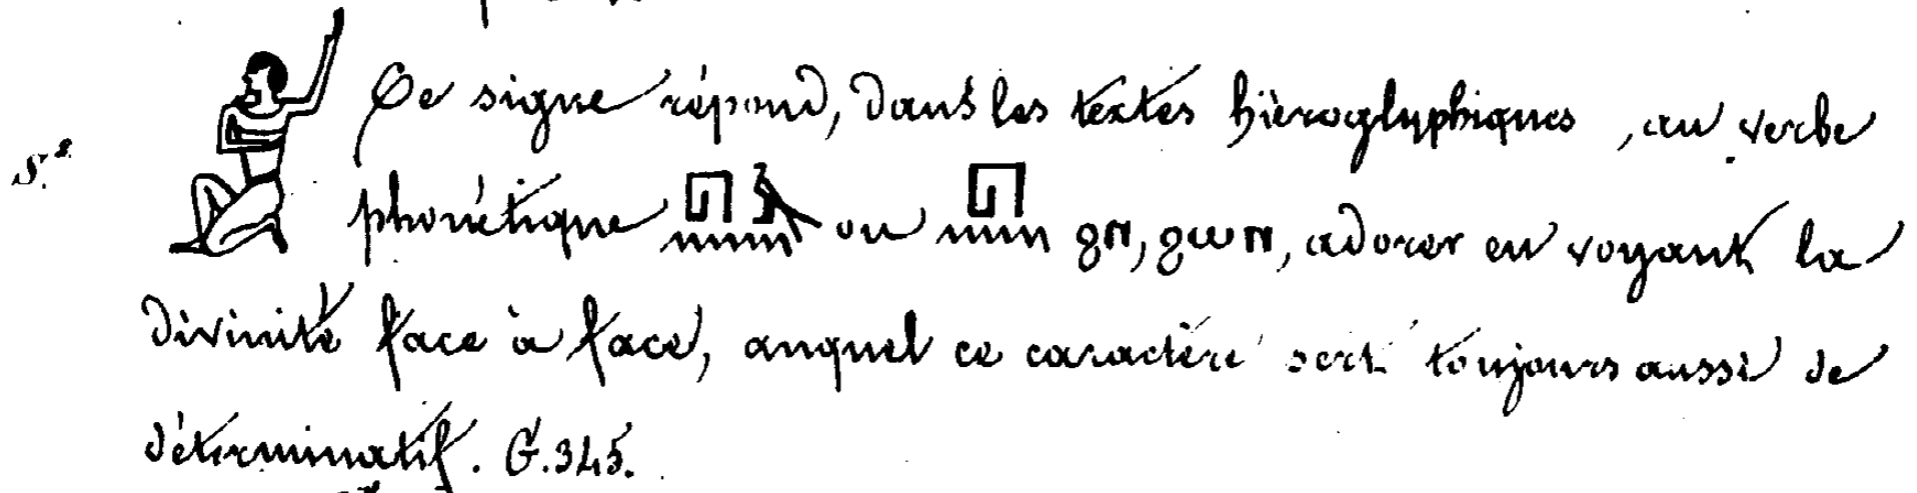 S.ᵉ Ce signe répond, dans les textes hiéroglyphiques, au verbe
phonétique 𓉔𓅱𓈖 ou 𓉔𓈖 ϩⲛ, ϩⲱⲛ, adorer en voyant la
divinité face à face, auquel ce caractère sert toujours aussi de
déterminatif. G. 345.